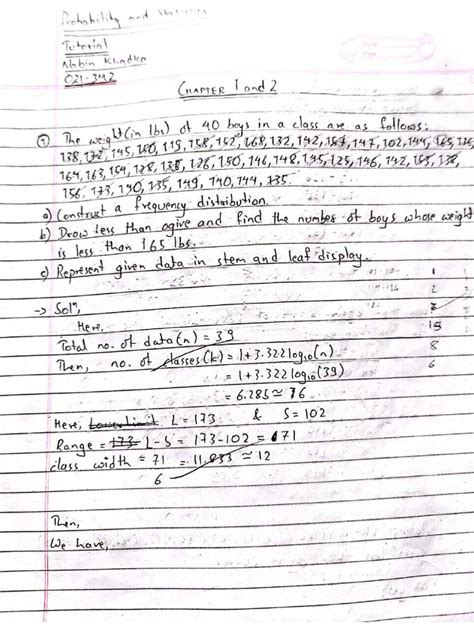 Probability and
Tutorial
Nabin Khadka
021-342
CHAPTER 1 and 2
① The weight (in lbs) of 40 boys in a class are as follows:
138, 172, 145, 150, 119, 158, 152, 168, 132, 142, 147, 102, 144, 165,
164, 163, 154, 128, 138, 126, 150, 146, 148, 145, 125, 146, 142, 153, 138,
156, 173, 140, 135, 149, 140, 144, 135.
a) Construct a frequency distribution.
b) Draw less than ogive and find the number of boys whose weight
is less than 165 lbs.
c) Represent given data in stem and leaf display.
1
2
7
→ Solⁿ,
15
Here,
8
Total no. of data(n) = 39
6
Then, no. of classes(k) = 1+3.322log₁₀(n)
= 1+3.322log₁₀(39)
= 6.285 ≈ 6
Here, Lower limit L = 173 & S = 102
Range = 173 L-S = 173-102 = 71
class width = 71 = 11.833 ≈ 12
6
Then,
We have,